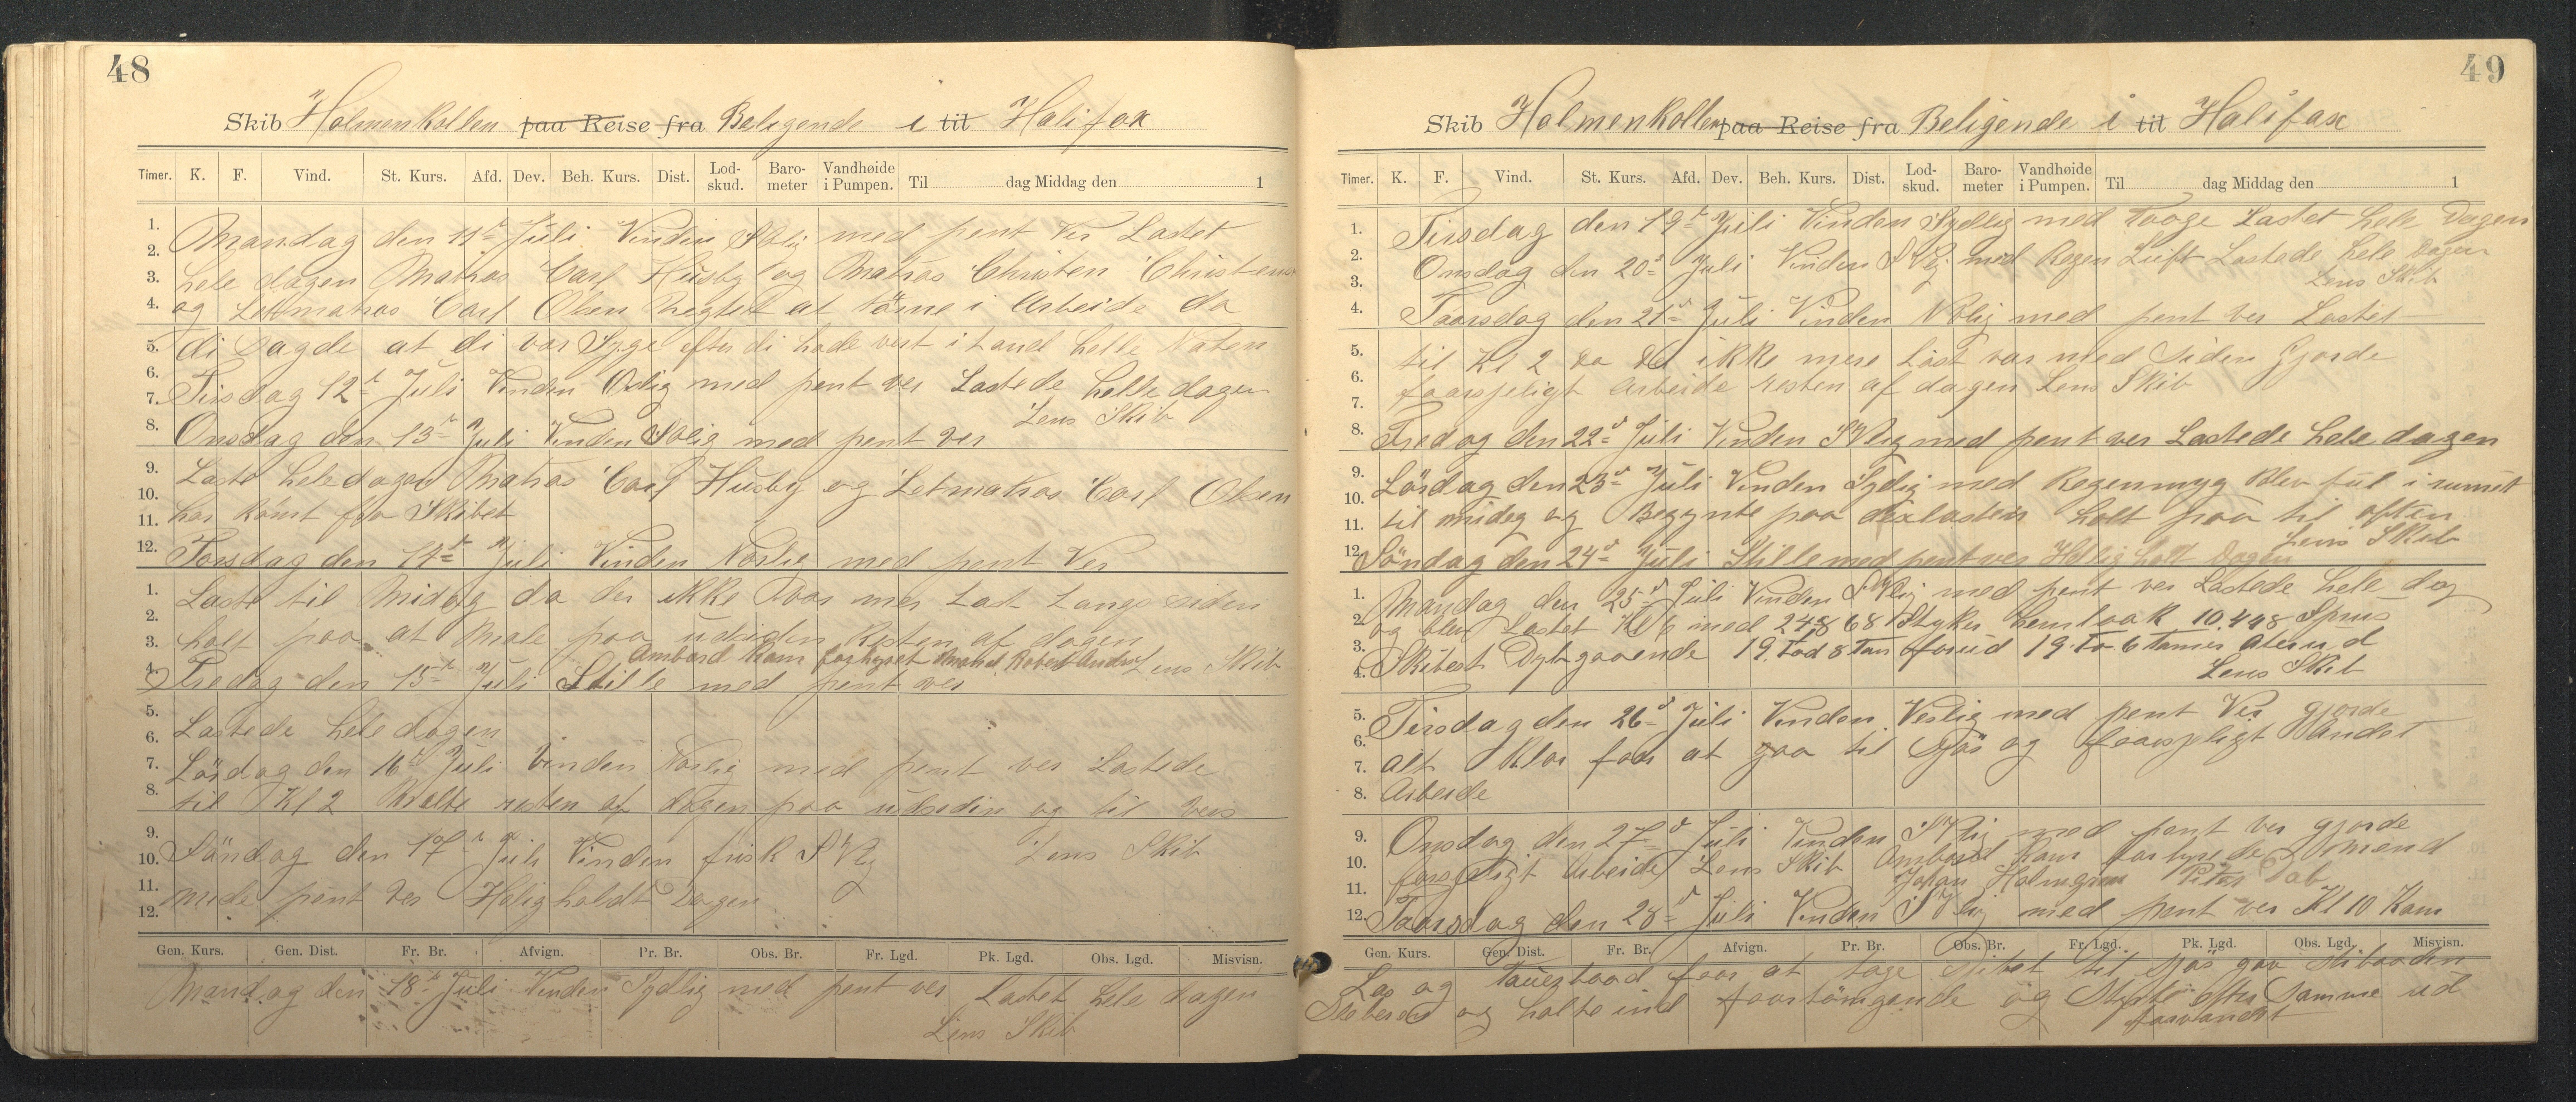 48
Skib Holmenkollen paa Reise fra Beligende i til Halifax
Timer. K. F. Vind. St. Kurs. Afd. Dev. Beh. Kurs. Dist. Lod-skud. Baro-meter Vandhøide i Pumpen. Til dag Middag den 1
Mandag den 11te Juli Vinden SOlig med pent Ver Lastet
hele dagen Matros Carl Husby og Matros Christen Christens
og Letmatros Carl Olsen negtet at törne i Arbeide da
di sagde at di var Syge efter di hade vert i Land helle Naten
Tirsdag 12te Juli Vinden Oslig med pent ver Lastede helle dagen
Lens Skib
Onsdag den 13te Juli Vinden SOlig med pent ver
Laste hele dagen Matros Carl Husby og Letmatros Carl Olsen
har römt fra Skibet
Torsdag den 14te Juli Vinden Norlig med pent Ver
Laste til Midag da der ikke var mer Last Langs siden
holt paa at Male paa udsiden Resten af dagen
Ambord kom faarhyret Mand Robert Lens Skib
Fredag den 15te Juli Stille med pent ver
Lastede hele dagen
Lördag den 16de Juli Vinden Norlig med pent ver Lastede
til Kl 2 Malte resten af dagen paa udsedin og til vers
Söndag den 17 Juli Vinden frisk SVlig Lens Skib
mede pent ver Helig holdt Dagen
Gen. Kurs. Gen. Dist. Fr. Br. Afvign. Pr. Br. Obs. Br. Fr. Lgd. Pk. Lgd. Obs. Lgd. Misvisn.
Mandag den 18te Juli Vinden Sydlig med pent ver Lastet hele dagen
Lens Skib
49
Skib Holmenkollen paa Reise fra Beligende i til Halifax
Timer. K. F. Vind. St. Kurs. Afd. Dev. Beh. Kurs. Dist. Lod-skud. Baro-meter Vandhøide i Pumpen. Til dag Middag den 1
Tirsdag den 19de Juli Vinden Sydlig med Taage Lastet hele Dagen
Onsdag den 20de Juli Vinden SVlig med Regen Luft Lastede hele dagen
Lens Skib
Taarsdag den 21de Juli Vinden NOlig med pent ver Lastet
til Kl 2 da det ikke mere Last var med Siden Gjorde
faarsjeligt Arbeide resten af dagen Lens Skib
Fredag den 22de Juli Vinden SVlig med pent ver Lastede hele dagen
Lördag den 23de Juli Vinden Sydlig med Regenmyg Blev ful i rumet
til midag og Begynte paa dexlasten holt paa til aften
Lens Skib
Söndag den 24de Juli Stille med pent ver Hellig holt Dagen
Mandag den 25de Juli Vinden SVlig med pent ver Lastede hele dag
og blev Lastet Kl 6 med 24868 Styker hemlaak 10.448 Sprus
Skibest Dybgaaende 19 fod 8 Tom forud 19 fo 6 tomer aterud
Lens Skib
Tirsdag den 26de Juli Vinden Veslig med pent Ver gjorde
alt Klar faar at gaa til Sjös og faarsjeligt Andet
Arbeide
Onsdag den 27de Juli Vinden SVlig med pent ver gjorde
farsjeligt Arbeide Lens Skib Ambord kom farhyrede 2 Mend
Johan Holmgren Peter Dab
Taarsdag den 28de Juli Vinden SVlig med pent ver Kl 10 Kom
Gen. Kurs. Gen. Dist. Fr. Br. Afvign. Pr. Br. Obs. Br. Fr. Lgd. Pk. Lgd. Obs. Lgd. Misvisn.
Los og Tauerbaad faar at tage Skibet til Sjös
og halte ind faartöingende og Styrte efter Samme ud
faarvandet